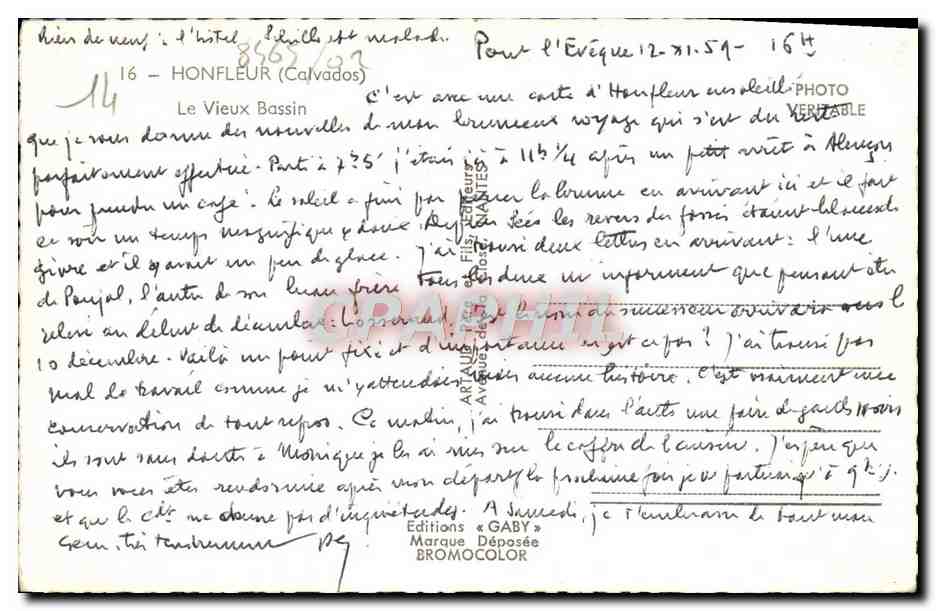 Rien de neuf : l'hôtel est malade
Pont l'Evêque 12-XI-59- 16H
8565/02
14
16 - HONFLEUR (Calvados)
Le Vieux Bassin
PHOTO
VERITABLE
C'est avec une carte d'Honfleur ensoleillé
que je vous donne des nouvelles de mon brumeux voyage qui s'est du reste
parfaitement effectué. Parti à 7h5' j'étais ici à 11h 1/4 après un petit arrêt à Alençon
pour prendre un café. Le soleil a fini par percer la brume en arrivant ici et il fait
ce soir un temps magnifique & doux. Depuis Sées les revers des fossés étaient blancs de
givre et il y avait un peu de glace. J'ai trouvé deux lettres en arrivant : l'une
de Poujol, l'autre de son beau frère. Tous les deux m'informent que pensant être
relevé au début de décembre : est le nom du successeur arrivera vers le
10 décembre. Voilà un point fixé et d'importance n'est ce pas ? J'ai trouvé pas
mal de travail comme je m'y attendais mais aucune histoire. C'est vraiment une
conservation de tout repos. Ce matin, j'ai trouvé dans l'auto une paire de gants noirs
ils sont sans doute à Monique je les ai mis sur le coffre de la cuisine. J'espère que
vous vous êtes rendormie après mon départ, la prochaine fois je ne partirai qu'à 9h
et que le ne donne pas d'inquiétudes. A Samedi, je t'embrasse de tout mon
cœur, très tendrement
ARTAUD Père et Fils, Editeurs
Avenue de la Close NANTES
CPARAMA
Editions « GABY »
Marque Déposée
BROMOCOLOR